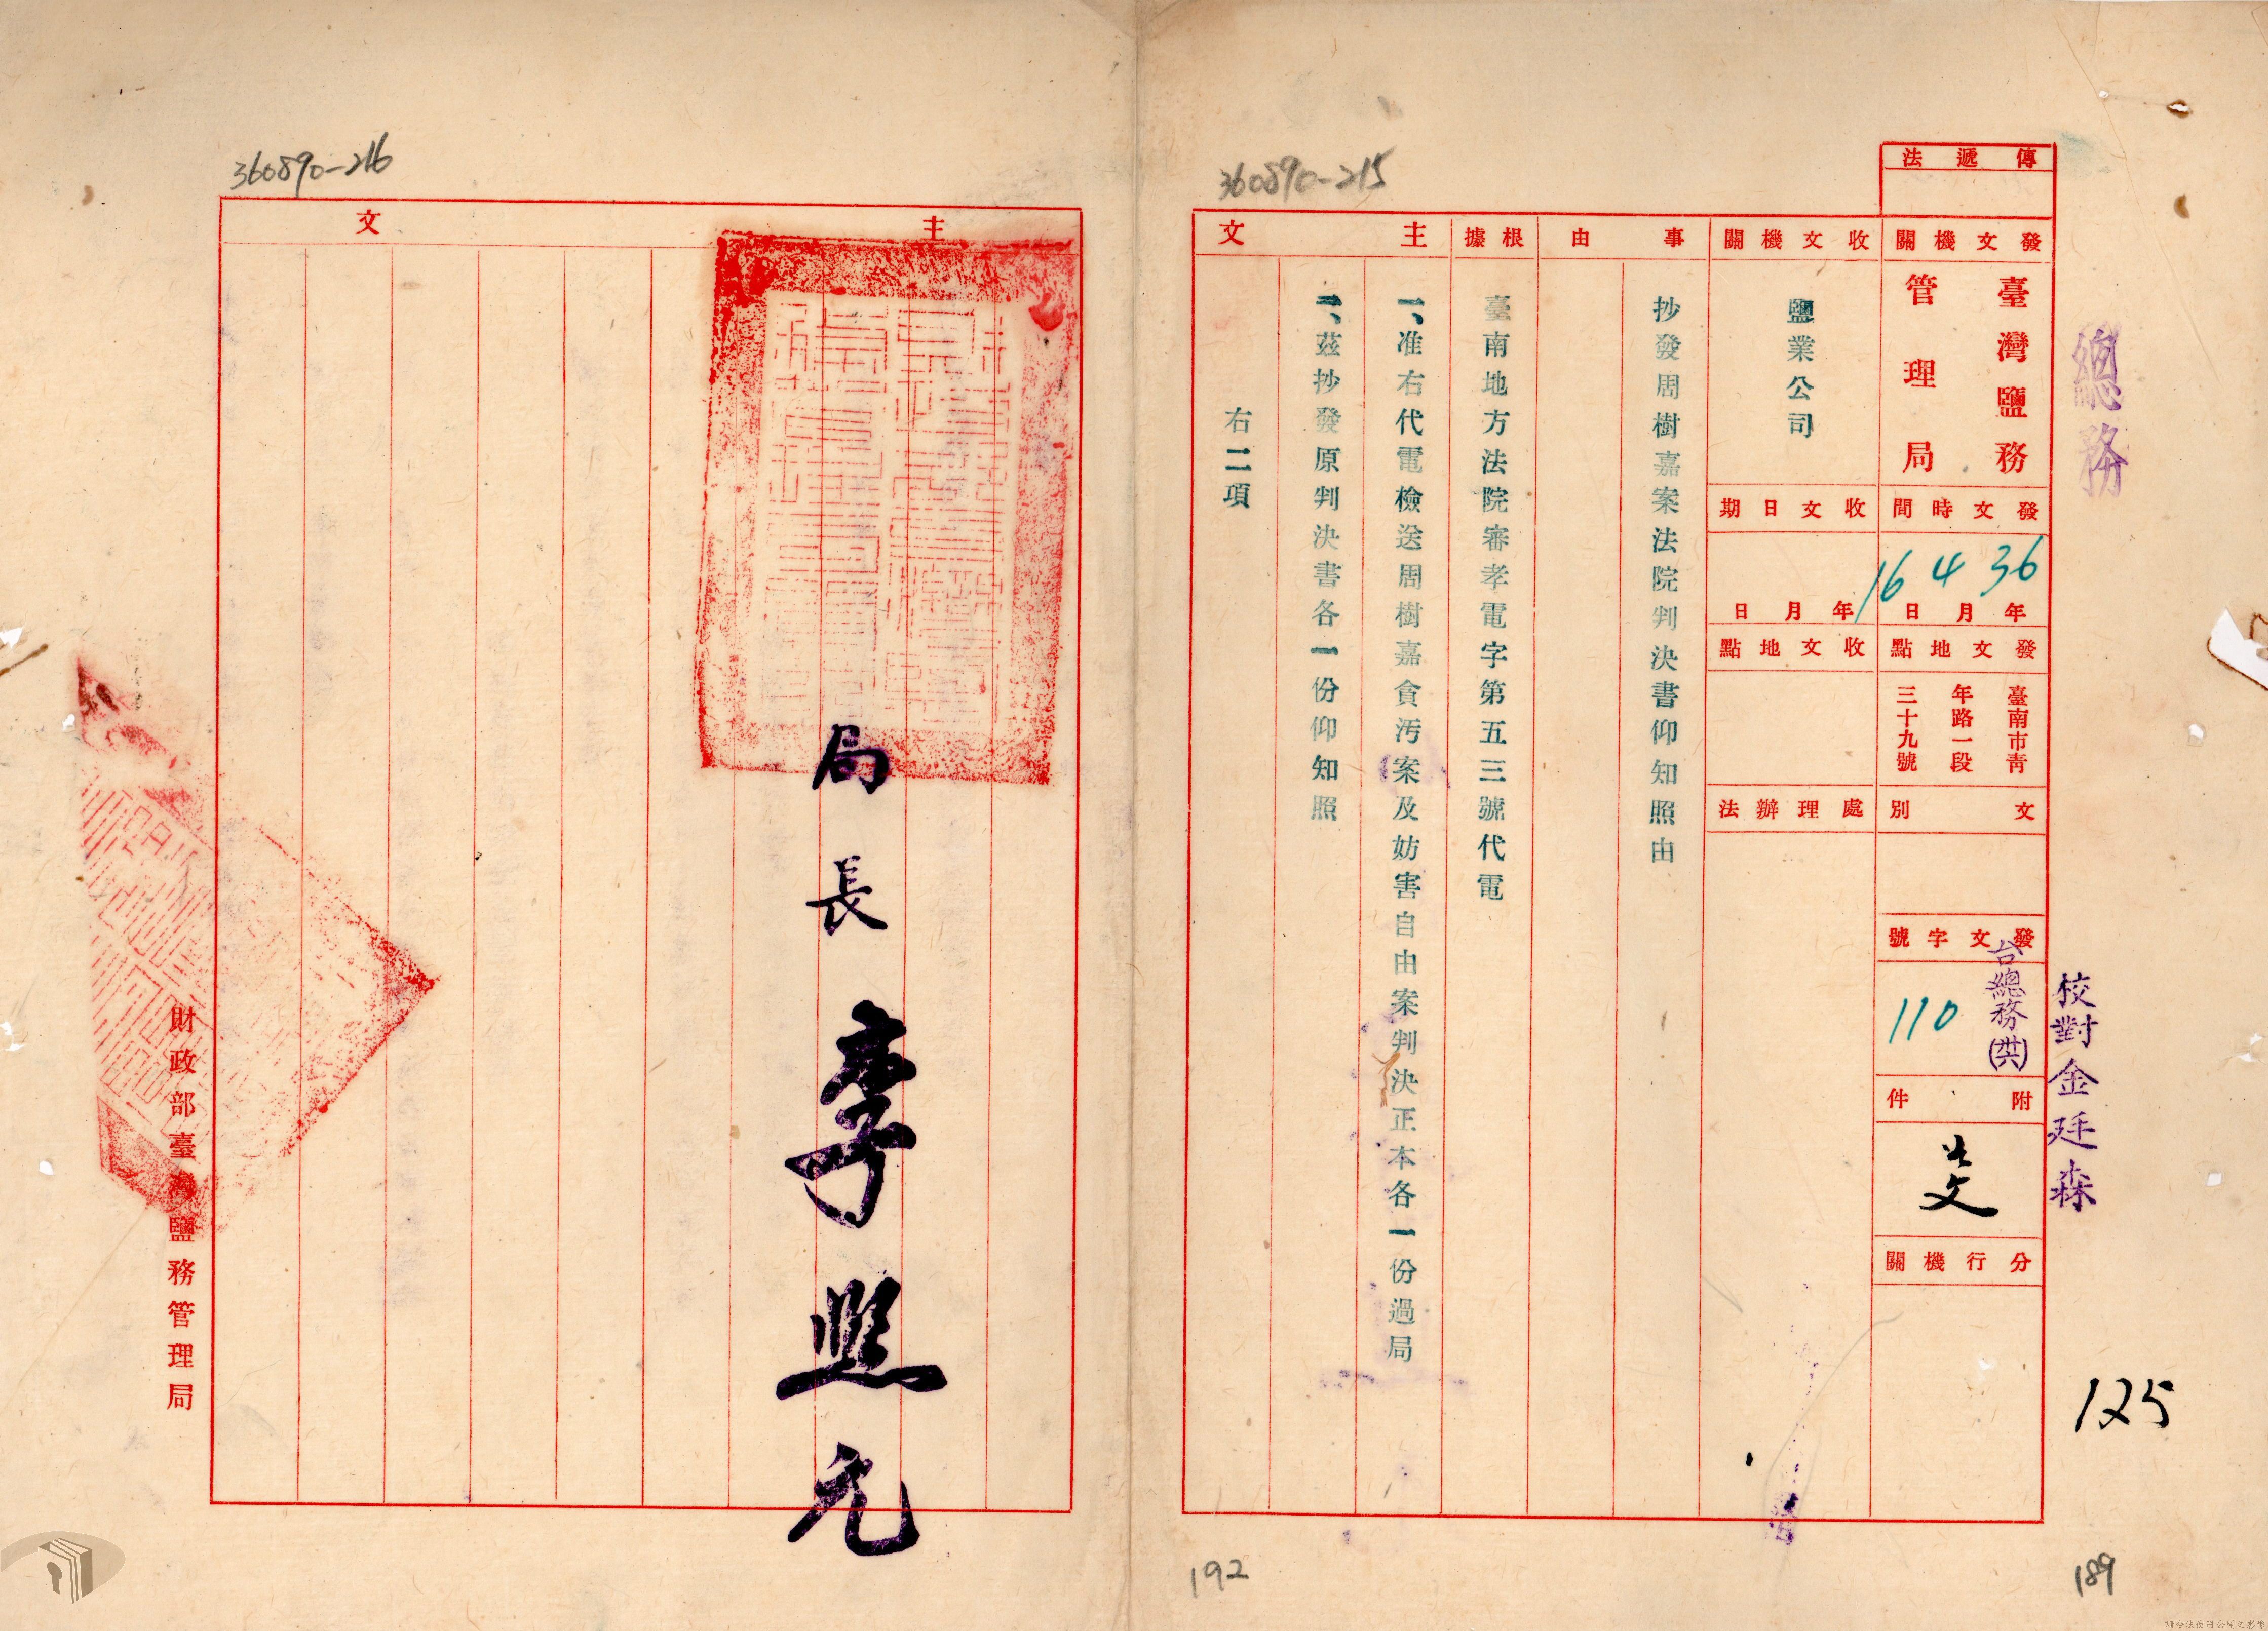 總務
校對金廷森
125
189
傳遞法
發文機關
臺灣鹽務
管理局
發文時間
36年4月16日
發文地點
臺南市青
年路一段
三十九號
文別
發文字號
台總務(共)
110
附件
如文
分行機關
收文機關
鹽業公司
收文日期
年月日
收文地點
處理辦法
事由
抄發周樹嘉案法院判決書仰知照由
根據
臺南地方法院審孝電字第五三號代電
主文
一、准右代電檢送周樹嘉貪汚案及妨害自由案判決正本各一份過局
二、茲抄發原判決書各一份仰知照
右二項
360890-215
192
360890-216
主文
局長李
元
財政部臺灣鹽務管理局
請合法使用公開之影像